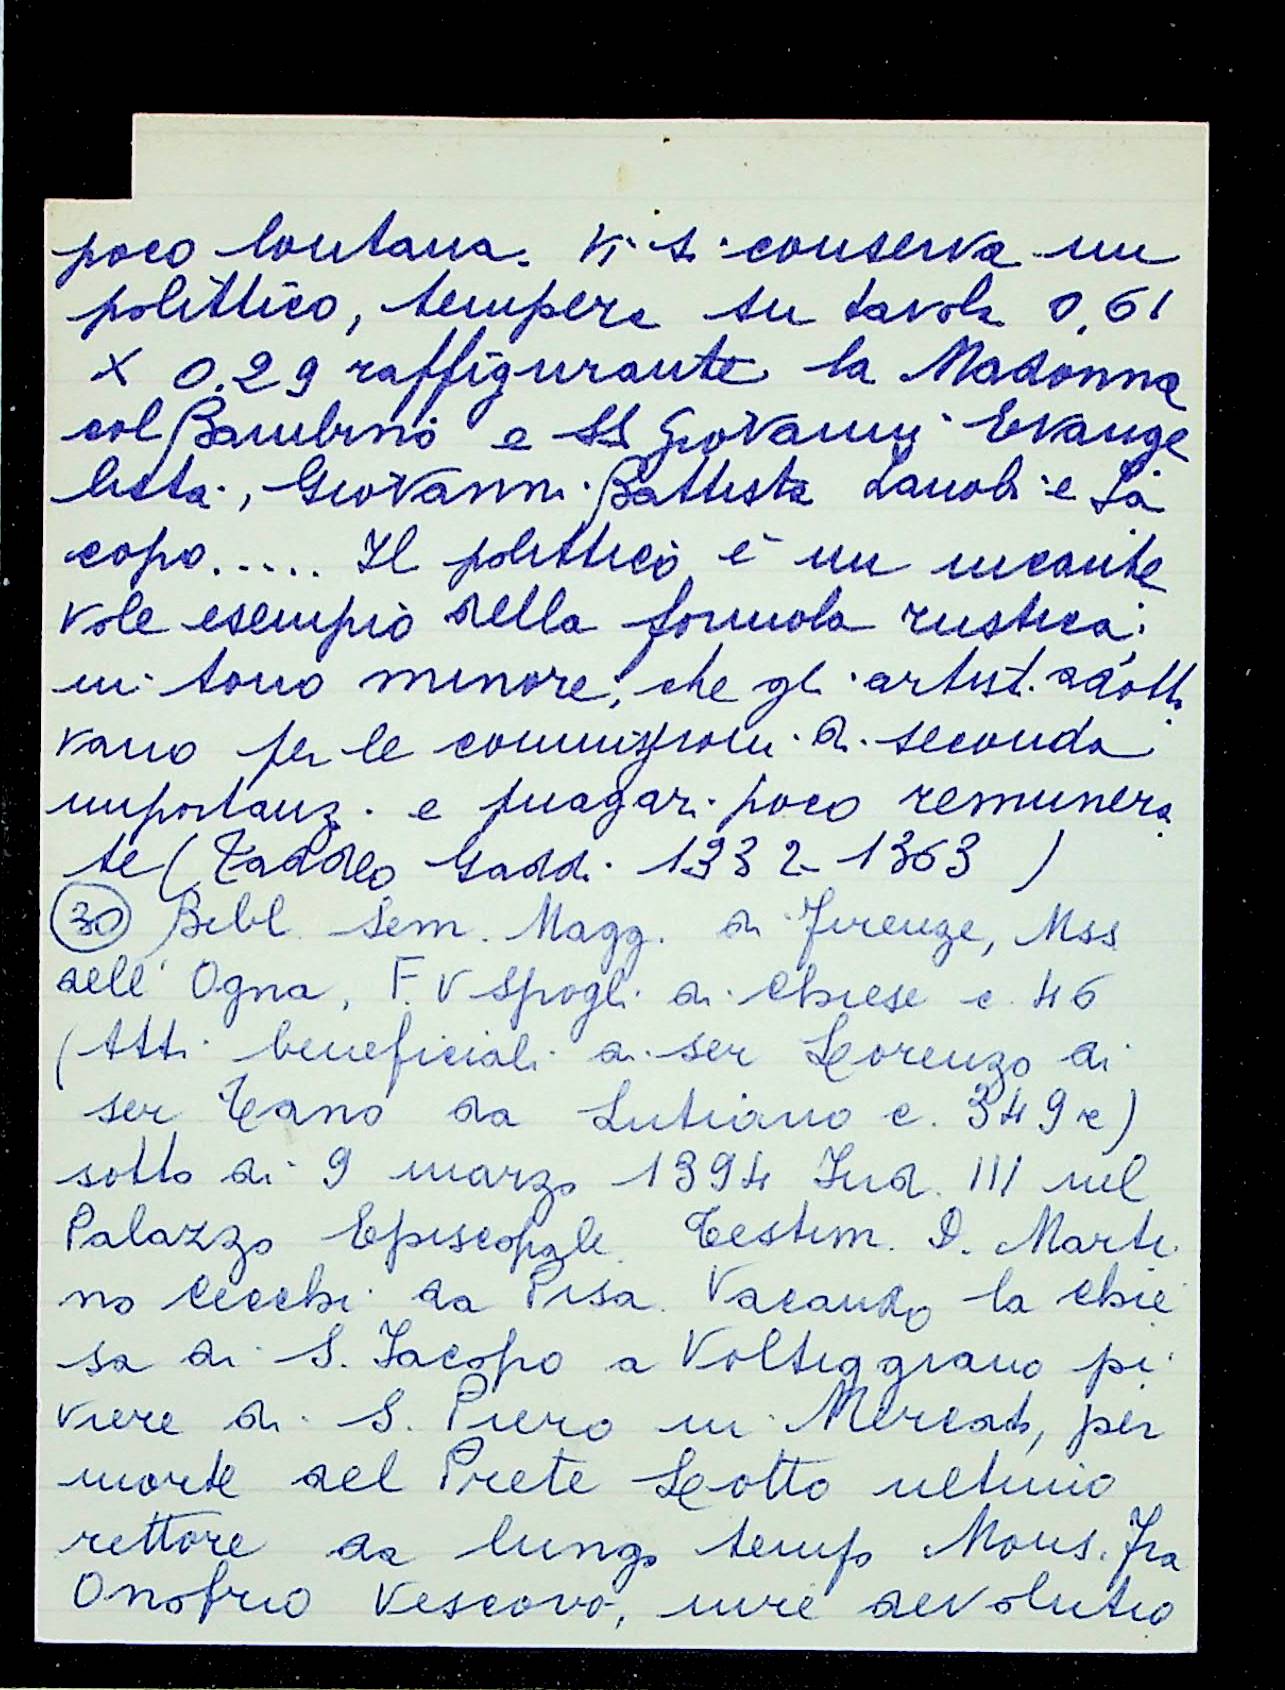 poco lontana. Vi si conserva un
polittico, tempera su tavola 0,61
x 0,29 raffigurante la Madonna
col Bambino e SS Giovanni Evange
lista, Giovanni Battista Zanobi e Ja
copo..... Il polittico è un incante
vole esempio della formola rustica,
in tono minore, che gli artisti adotta
vano per le commissioni di seconda
importanza e magari poco remunera
te (Taddeo Gaddi 1332-1363)
30 Bibl. Sem. Magg. di Firenze, Mss
dell' Ogna, F. V Spogli di Chiese c. 46
(Atti beneficiali di ser Lorenzo di
ser Tano da Lutiano c. 349 r)
sotto di 9 marzo 1394 Ind. III nel
Palazzo Episcopale Testim. D. Marti
no Cecchi da Pisa. Vacando la chie
sa di S. Jacopo a Voltiggiano pi
viere di S. Piero in Mercato, per
morte del Prete Lotto ultimo
rettore da lungo tempo Mons. Fra
Onofrio Vescovo, iure devolutio